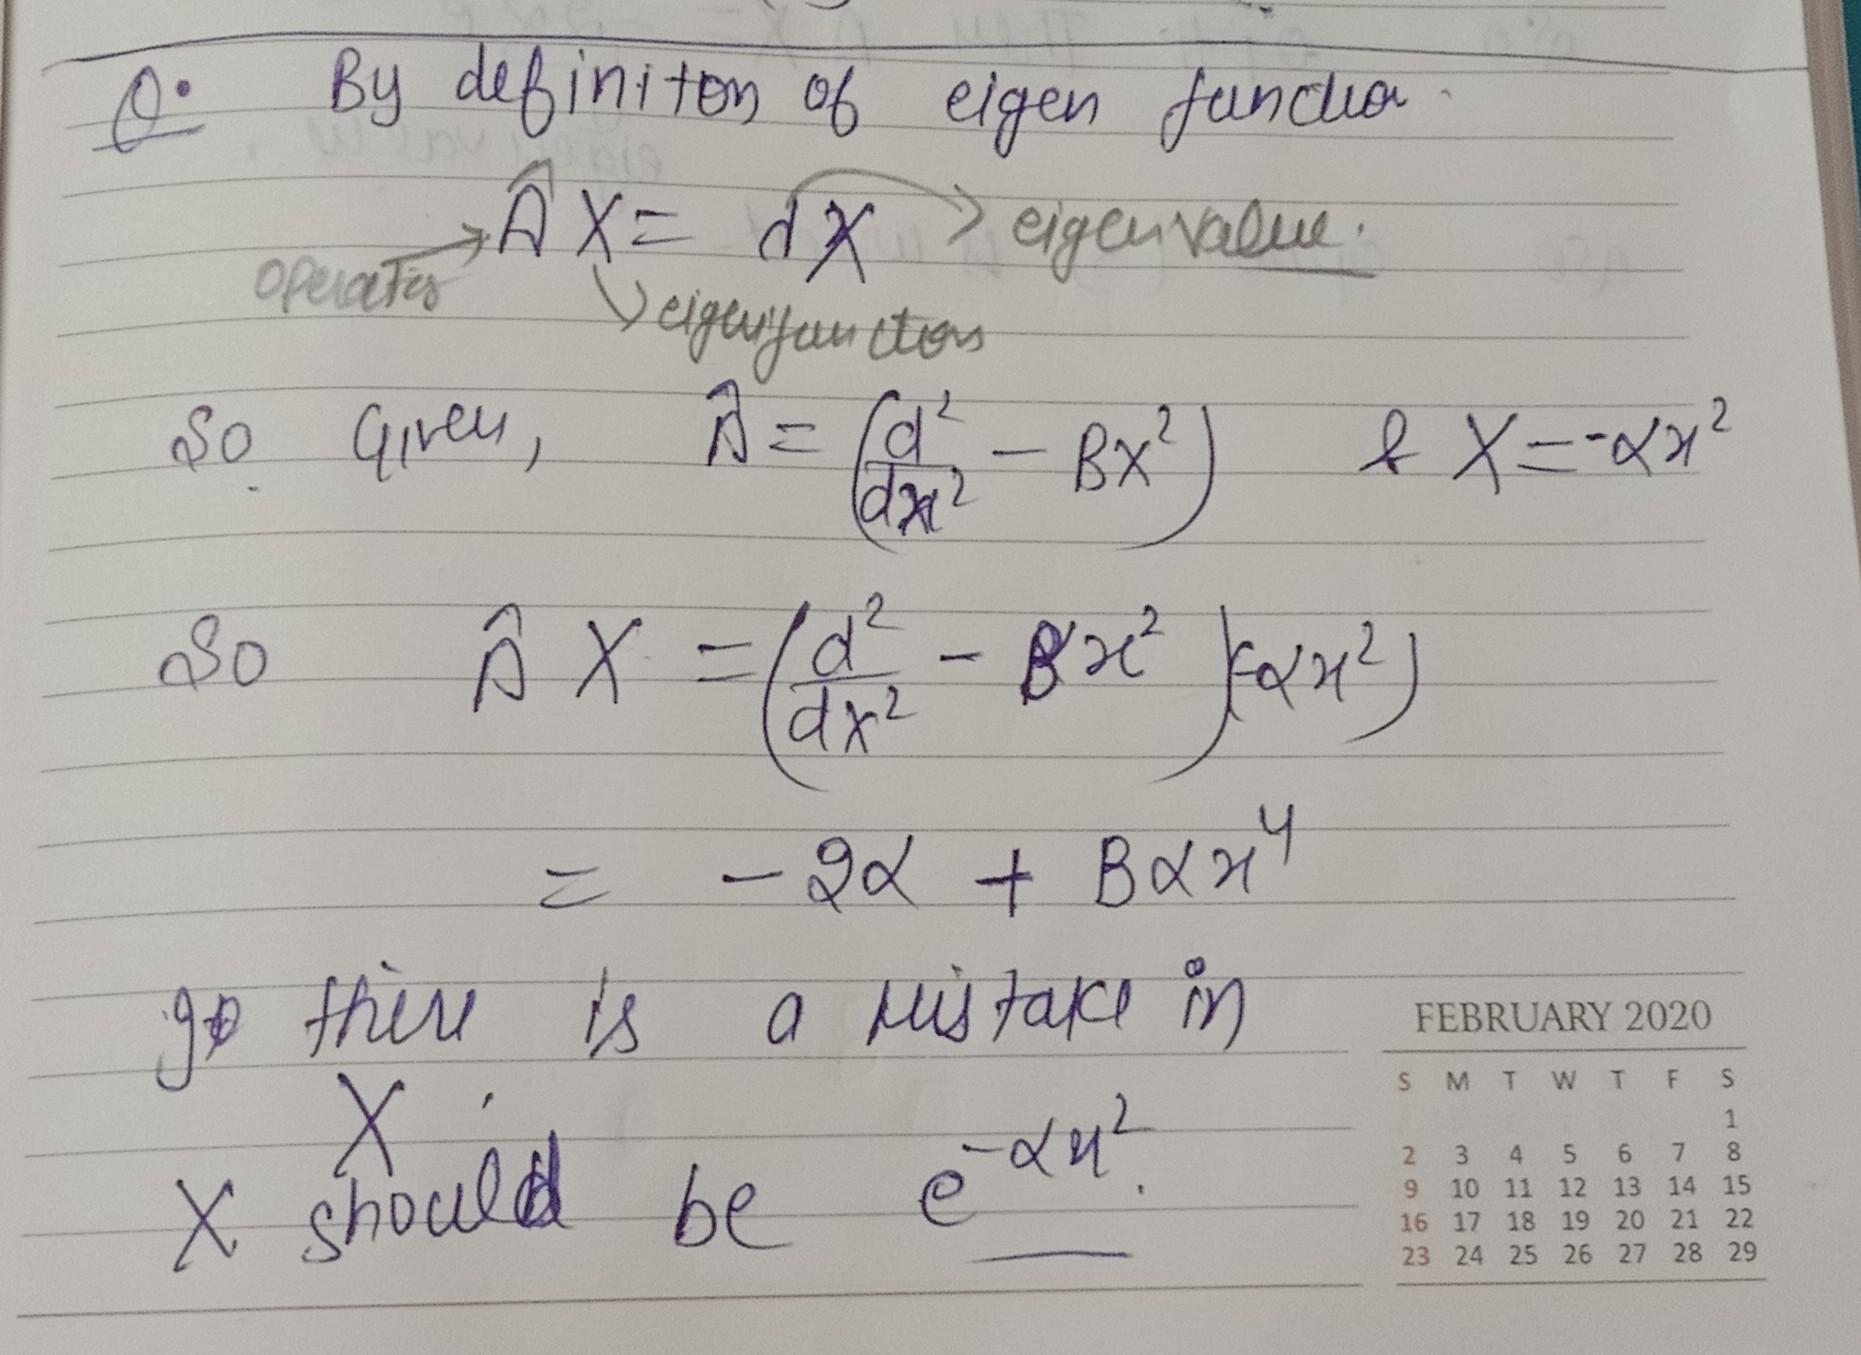 Q. By definiton of eigen function
Â X = dX → eigenvalue.
operator
eigenfunction
So Given, Â = (d²/dx² - Bx²) & X = -αx²
So Â X = (d²/dx² - Bx²)(-αx²)
= -2α + Bαx⁴
so there is a mistake in
X.
X should be e^{-αx²}.
FEBRUARY 2020
S M T W T F S
1
2 3 4 5 6 7 8
9 10 11 12 13 14 15
16 17 18 19 20 21 22
23 24 25 26 27 28 29